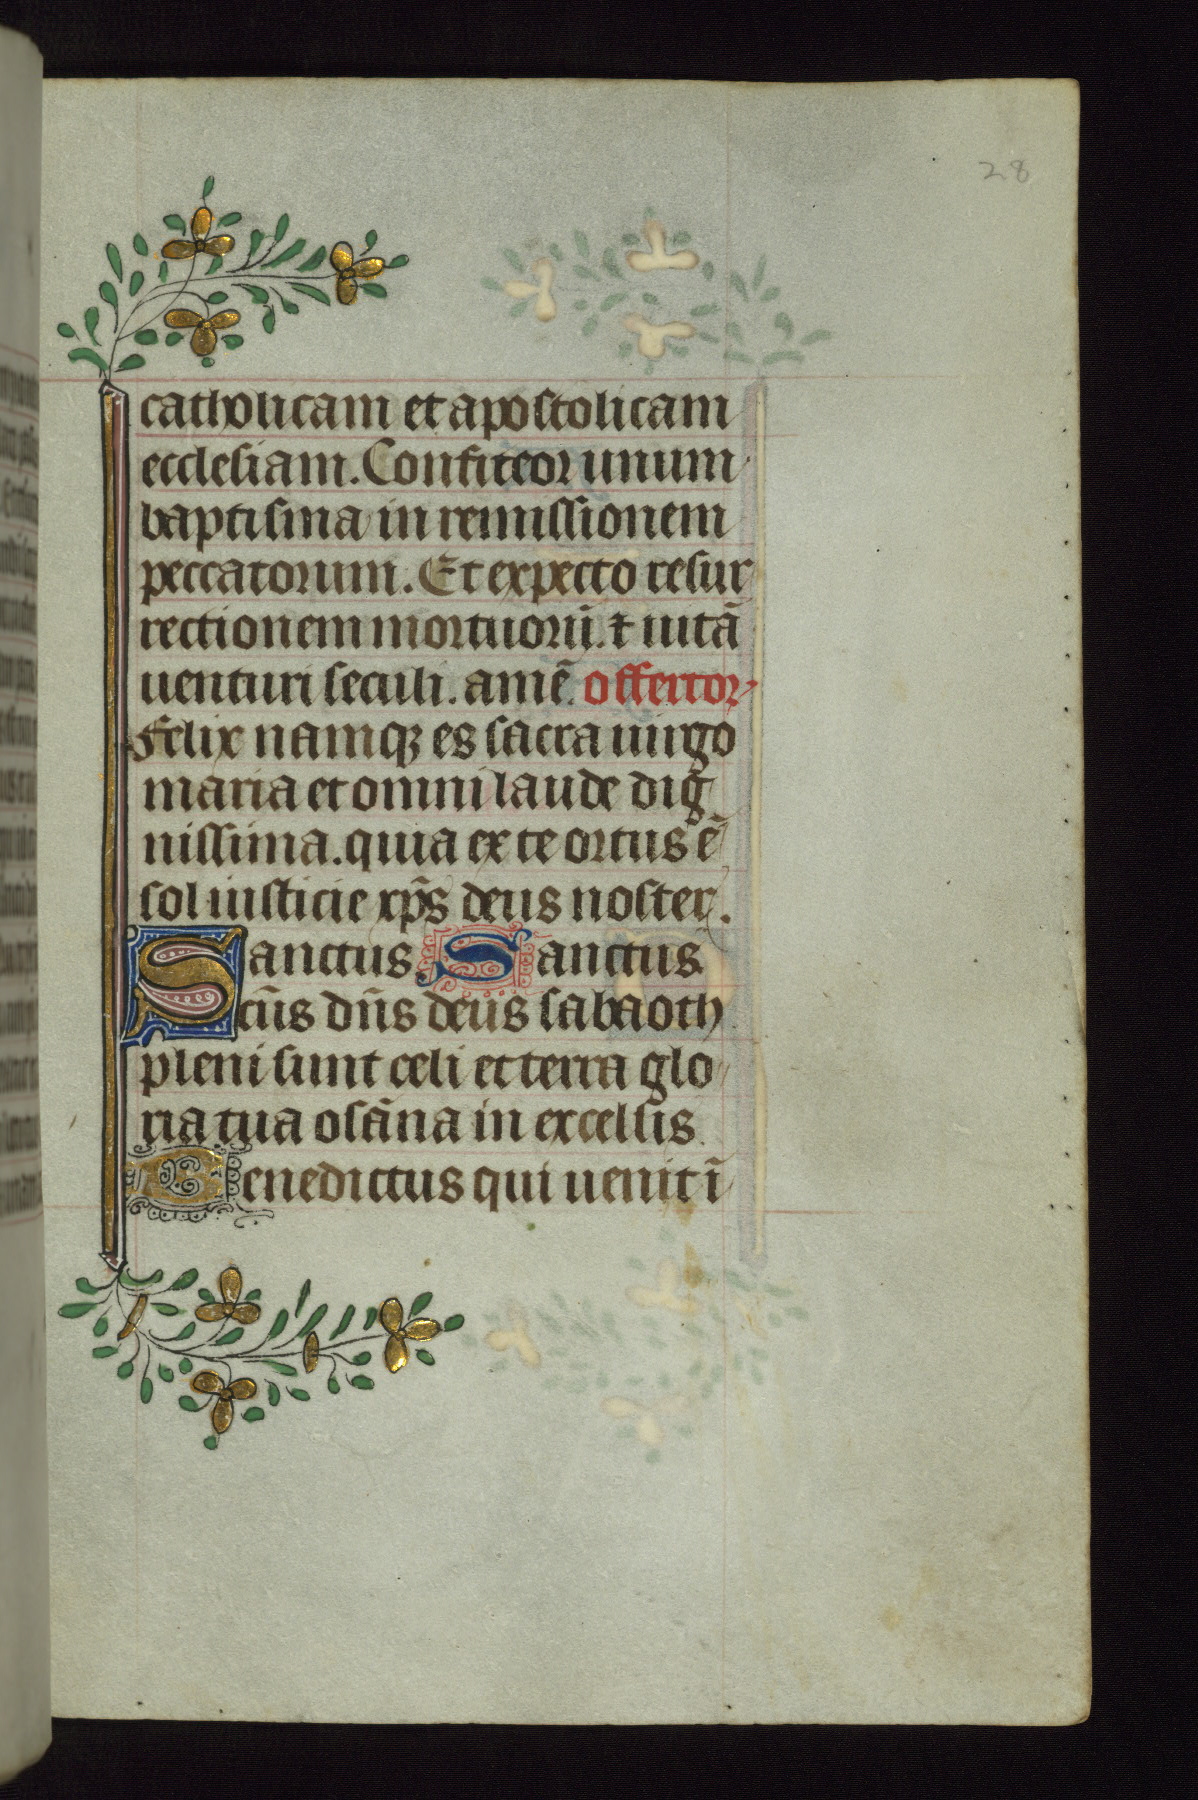 28
catholicam et apostolicam
ecclesiam. Confiteor unum
baptisma in remissionem
peccatorum. Et expecto resur
rectionem mortuorū. ⁊ uitā
uenturi seculi. amē. offertor
Felix namqꝫ es sacra uirgo
maria et omni laude diḡ
nissima. quia ex te ortus ē
sol iusticie xp̄s deus noster.
Sanctus. Sanctus
cūs dn̄s deus sabaoth
pleni sunt celi et terra glo
ria tua osāna in excelsis.
Benedictus qui uenit ī